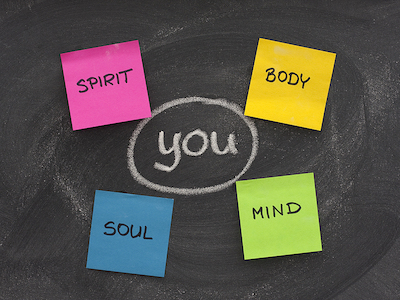 SPIRIT
BODY
you
SOUL
MIND